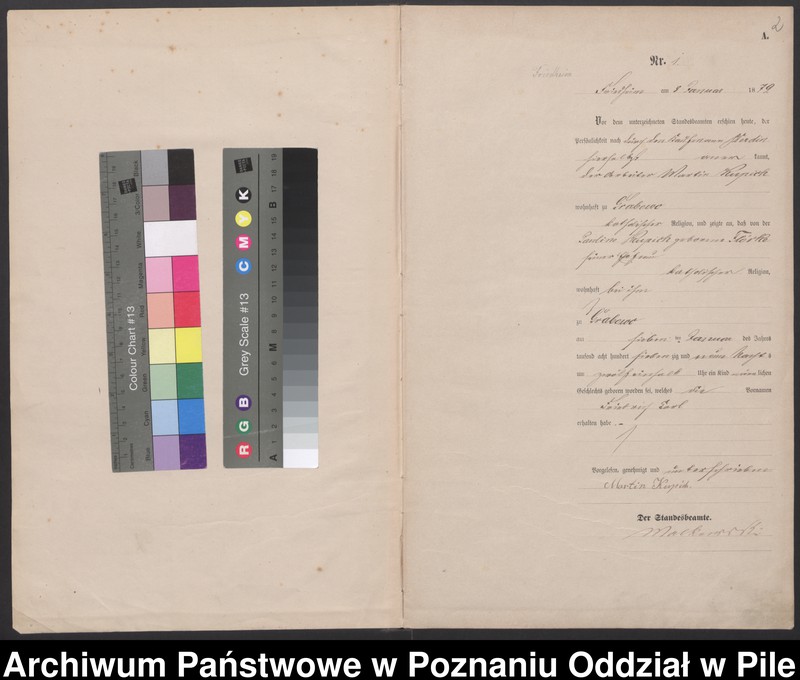 2
A.
Nr. 1.
Friedheim
Friedheim am 8 Januar 1879
Vor dem unterzeichneten Standesbeamten erschien heute, der
Persönlichkeit nach durch den Kaufmann
kannt,
der Arbeiter Martin Kupich
wohnhaft zu Grabowo
katholischer Religion, und zeigte an, daß von der
Kupich geborene
seiner Ehefrau
katholischer Religion,
wohnhaft bei ihm
zu Grabowo
am sieben ten Januar des Jahres
tausend acht hundert sieben zig und neun Nachts
um zwölfeinhalb Uhr ein Kind männlichen
Geschlechts geboren worden sei, welches die Vornamen
Friedrich Carl
erhalten habe.
Vorgelesen, genehmigt und unterschrieben
Martin Kupich.
Der Standesbeamte.
Colour Chart #13
Black
3/Color
White
Magenta
Red
Yellow
Green
Cyan
Blue
Centimetres
Grey Scale #13
R G B C M Y K
A 1 2 3 4 5 6 M 8 9 10 11 12 13 14 15 B 17 18 19
Archiwum Państwowe w Poznaniu Oddział w Pile